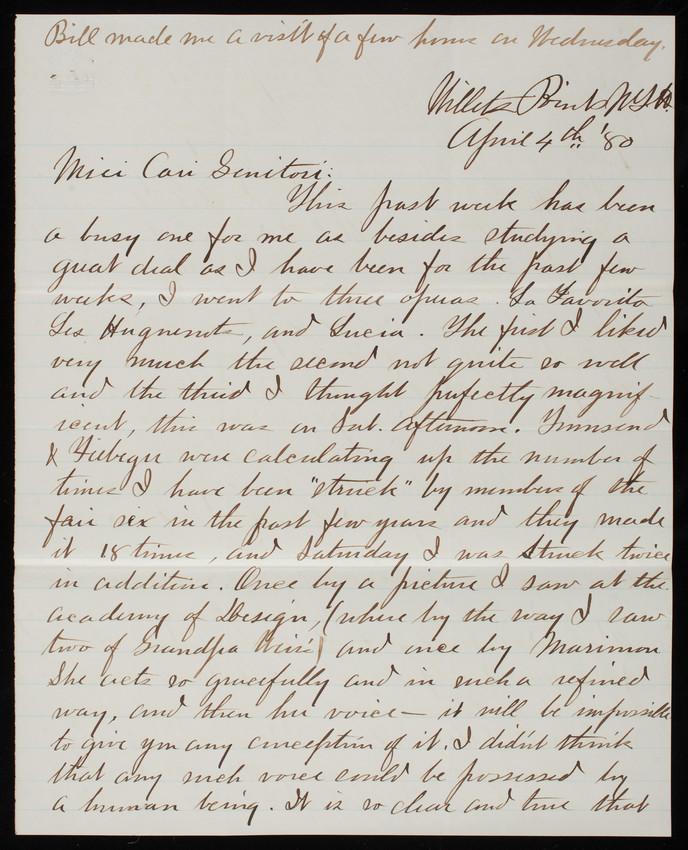 Bill made me a visit of a few hours on Wednesday.
Willets Point N.Y.H.
April 4th '80
Miei Cari Genitori:
This past week has been
a busy one for me as besides studying a
great deal as I have been for the past few
weeks, I went to three operas. La Favorita
Les Huguenots, and Lucia. The first I liked
very much the second not quite so well
and the third I thought perfectly magnif-
icent, this was on Sat. afternoon. Townsend
& Fiebeger were calculating up the number of
times I have been "struck" by members of the
fair sex in the past few years and they made
it 18 times, and Saturday I was struck twice
in addition. Once by a picture I saw at the
academy of Design, (where by the way I saw
two of Grandpa Weir's) and once by Marimon
She acts so gracefully and in such a refined
way, and then her voice — it will be impossible
to give you any conception of it. I didn't think
that any such voice could be possessed by
a human being. It is so clear and true that